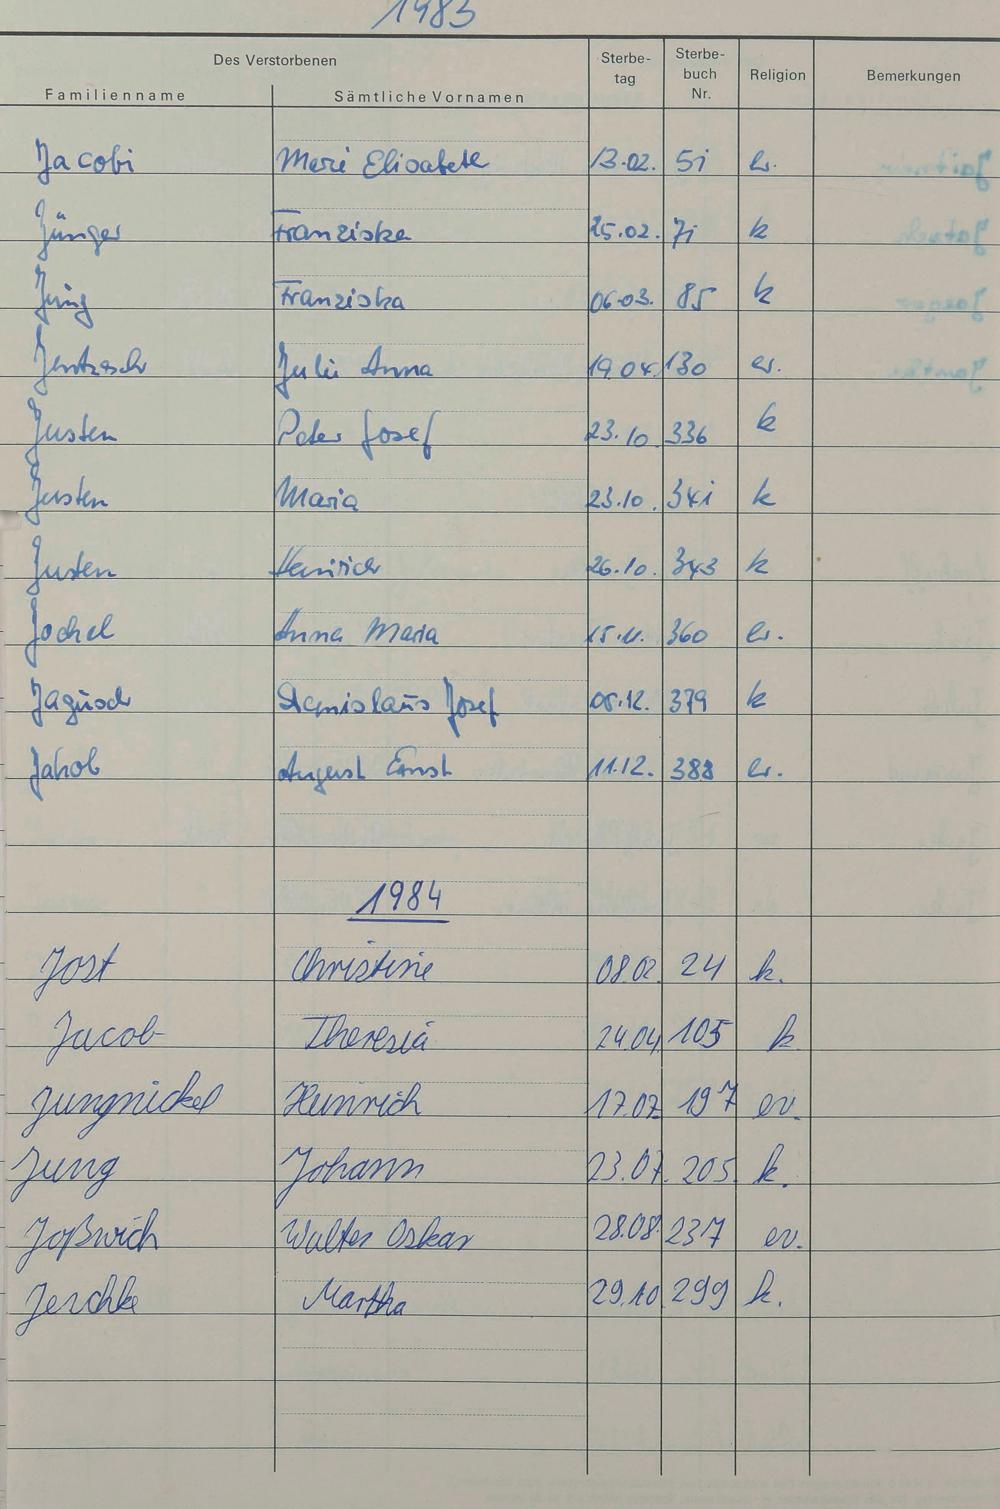 1983
Des Verstorbenen Sterbe-
tag Sterbe-
buch
Nr. Religion Bemerkungen
Familienname Sämtliche Vornamen
Jacobi Marie Elisabeth 13.02. 51 ev.
Jünger Franziska 25.02. 71 k
Jung Franziska 06.03. 85 k
Jentzsch Julie Anna 19.04. 130 ev.
Justen Peter Josef 23.10. 336 k
Justen Maria 23.10. 341 k
Justen Heinrich 26.10. 343 k
Jochel Anna Maria 15.11. 360 ev.
Jagusch Stanislaus Josef 05.12. 379 k
Jakob August Ernst 11.12. 388 ev.
1984
Jost Christine 08.02. 24 k.
Jacob Theresia 24.04. 105 k.
Jungnickel Heinrich 17.07. 197 ev.
Jung Johann 23.07. 205. k.
Joßwich Walter Oskar 28.08. 237 ev.
Jeschke Martha 29.10. 299 k.